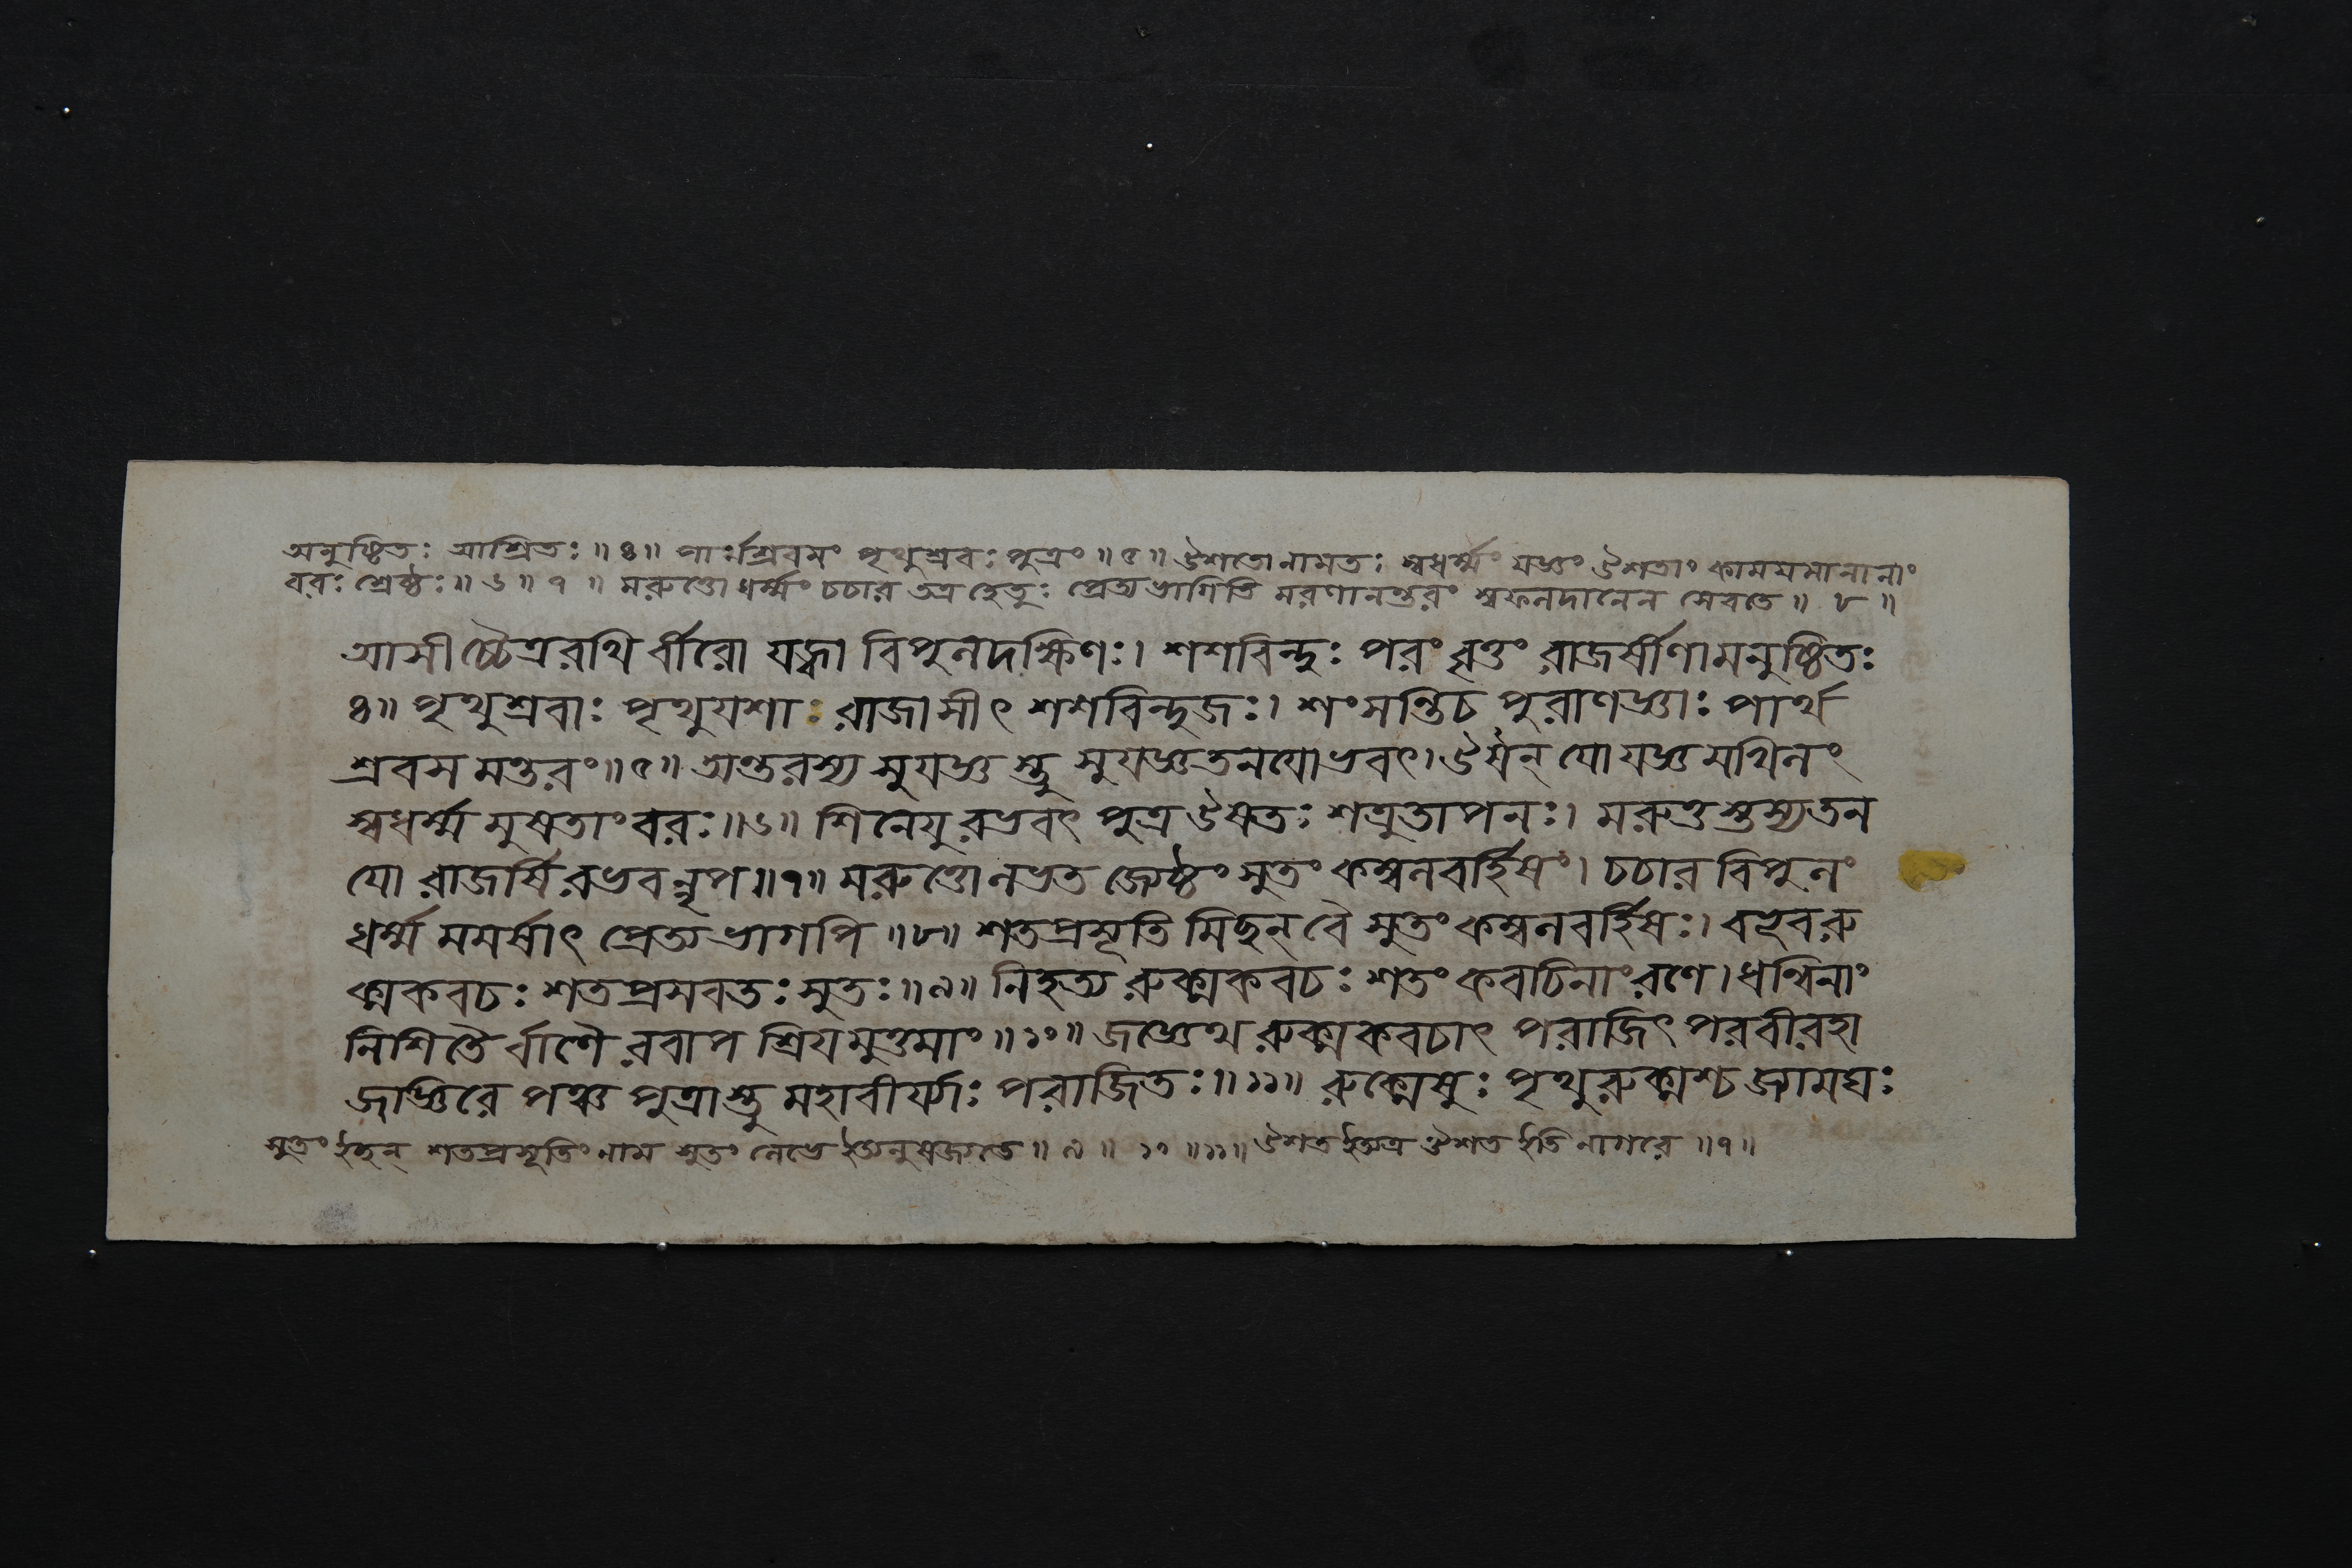 অনুষ্ঠিতঃ আশ্রিতঃ ॥ ৪ ॥ পার্শ্রবসং পৃথুশ্রবঃ পুত্রং ॥ ৫ ॥ ঔশতো নামতঃ স্বধর্ম্মং যজ্ঞং ঔশতাং কামযমানানাং
বরঃ শ্রেষ্ঠঃ ॥ ৬ ॥ ৭ ॥ মরুত্তো ধর্ম্মং চচার তত্র হেতুঃ প্রেত্যভাগিতি মরণানন্তরং স্বফলদানেন সেবতে ॥ ৮ ॥
আসীচ্চৈত্ররথি র্বীরো যজ্বা বিপুলদক্ষিণঃ। শশবিন্দুঃ পরং বৃত্তং রাজর্ষীণামনুষ্ঠিতঃ
৪॥ পৃথুশ্রবাঃ পৃথুযশাঃ রাজাসীৎ শশবিন্দুজঃ। শংসন্তি চ পুরাণজ্ঞাঃ পার্থ
শ্রবস মন্তরং॥৫॥ অন্তরস্য সুযজ্ঞস্তু সুযজ্ঞতনযোভবৎ। ঔষন্ যো যজ্ঞমখিলং
স্বধর্ম্ম মুষতাং বরঃ॥৬॥ শিনেযু রভবৎ পুত্র ঔষতঃ শত্রুতাপনঃ। মরুত্তস্তস্যতন
যো রাজর্ষি রভবন্নৃপ॥৭॥ মরুত্তোলভত জ্যেষ্ঠং সুতং কম্বলবর্হিষং। চচার বিপুলং
ধর্ম্ম মমর্ষাৎ প্রেত্যভাগপি ॥৮॥ শতপ্রসূতি মিচ্ছন্ বৈ সুতং কম্বলবর্হিষঃ। বহূবরু
ক্মকবচঃ শতপ্রসবতঃ সুতঃ॥৯॥ নিহত্য রুক্মকবচঃ শতং কবচিনাং রণে। ধন্বিনাং
নিশিতৈ র্বাণৈ রবাপ শ্রিযমুত্তমাং ॥১০॥ জজ্ঞেথ রুক্মকবচাৎ পরাজিৎ পরবীরহা
জজ্ঞিরে পঞ্চ পুত্রাস্তু মহাবীর্য্যাঃ পরাজিতঃ॥১১॥ রুক্মেষুঃ পৃথুরুক্মশ্চ জ্যামঘঃ
সুতং ইচ্ছন্ শতপ্রসূতিং নাম সুতং লেভে ইত্যনুষজ্যতে ॥ ৯ ॥ ১০ ॥১১॥ ঔশত ইত্যত্র ঔশত ইতি নাগরে ॥৭॥